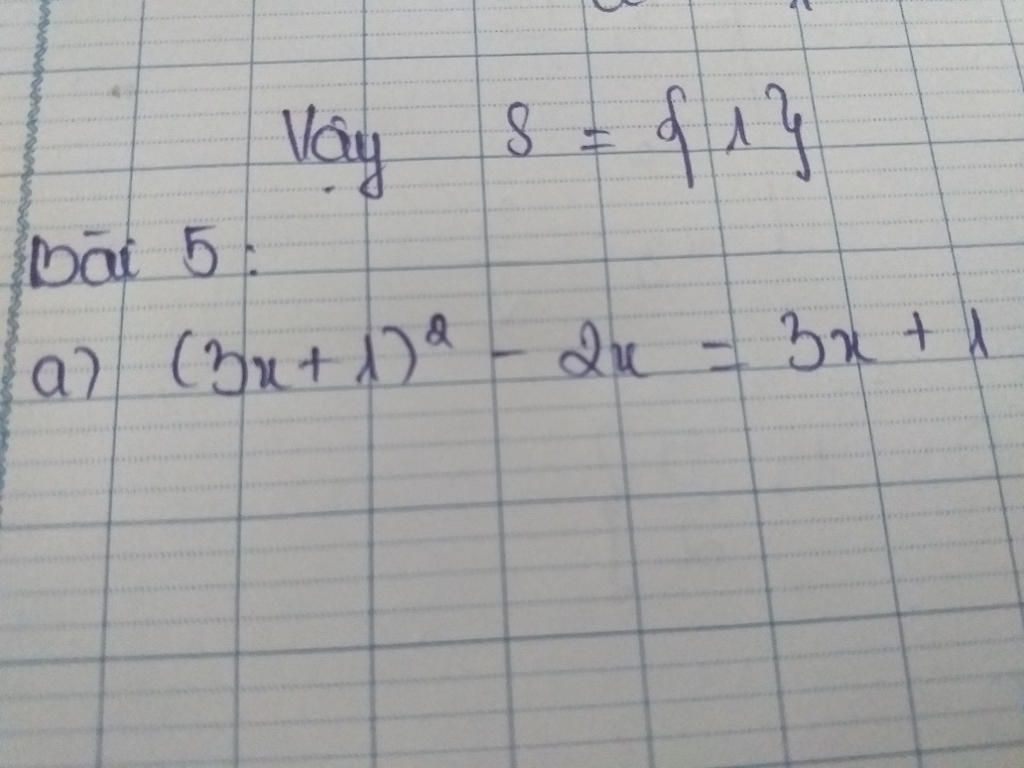 Vậy S = {1}
Bài 5:
a) (3x + 1)² - 2x = 3x + 1